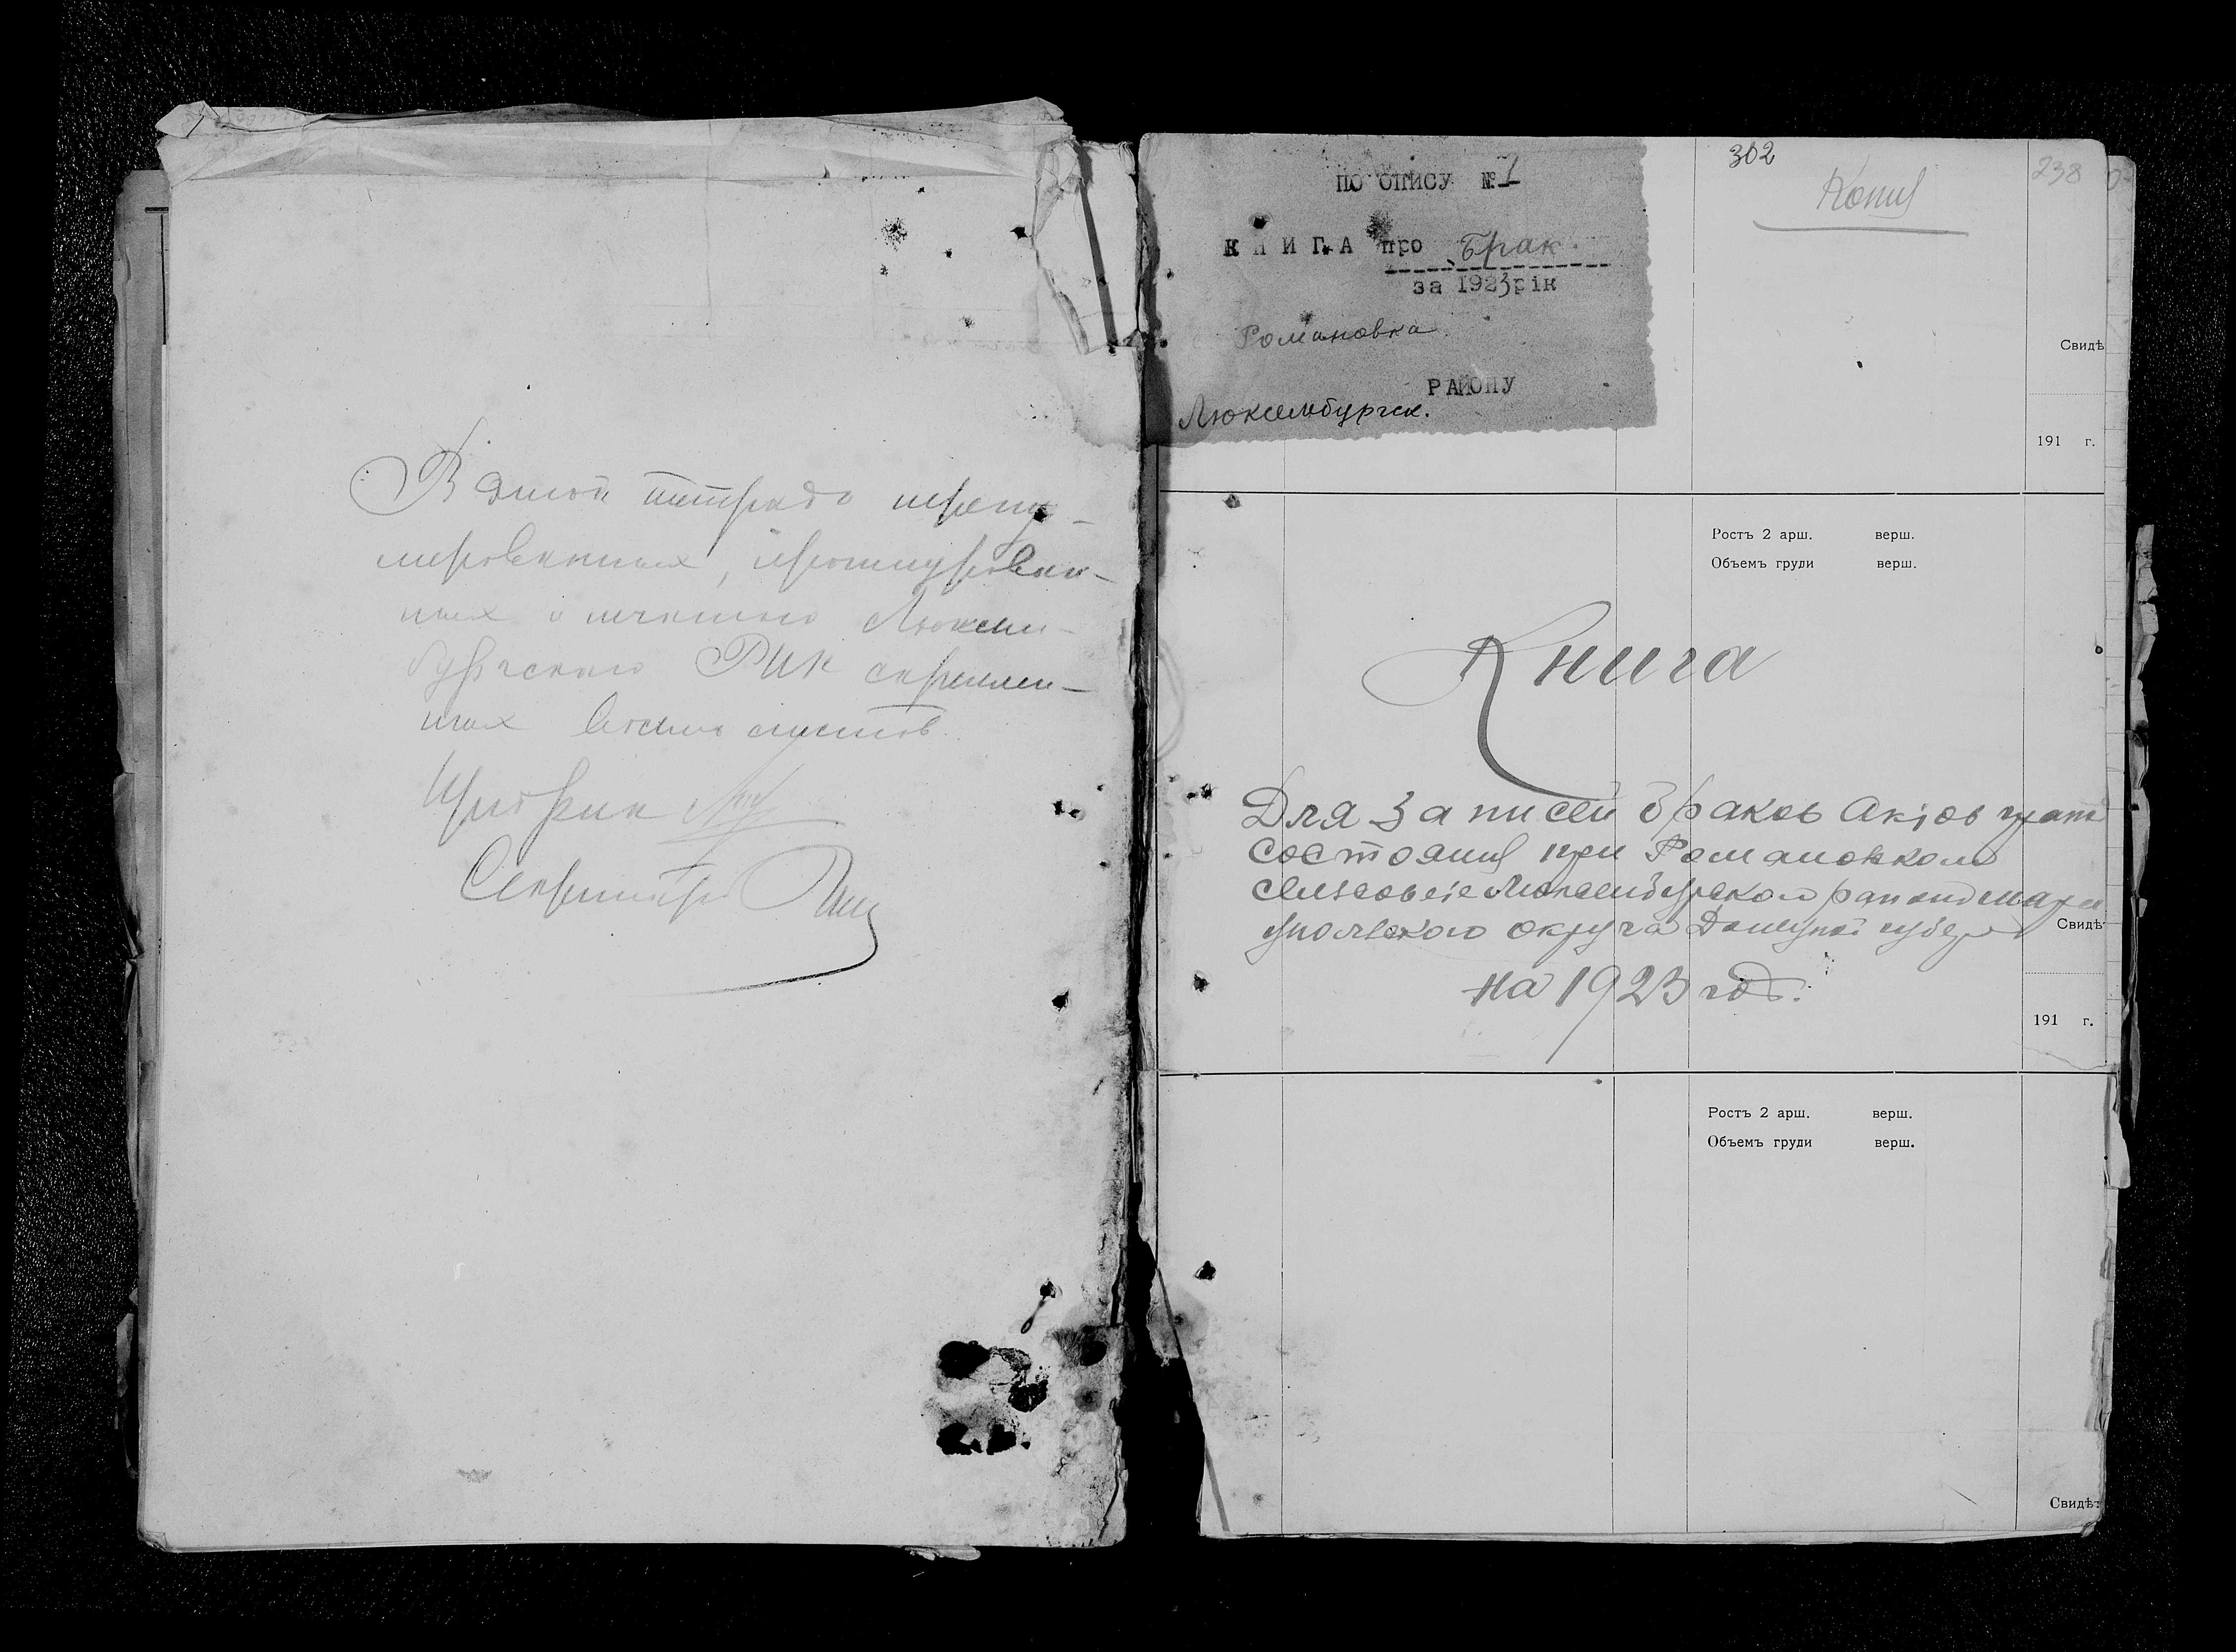 В этой тетради перену-
мерованных, прошнурован-
ных и печатью Люксем-
бургского РИК скреплен-
ных восемь листов.
Секретарь
ПО ОПИСУ № 1
КНИГА про Брак
за 1923 рік
Романовка
РАЙОНУ
Люксембургск.
302
238
Копия
Свидѣ
191 г.
Ростъ 2 арш. верш.
Объемъ груди верш.
Книга
Для записей браков Актов граж
состояния при Романовском
сельсовете Люксембургского района Мариу
упольского округа Донецкой губер
на 1923 год.
Свидѣ
191 г.
Ростъ 2 арш. верш.
Объемъ груди верш.
Свидѣ